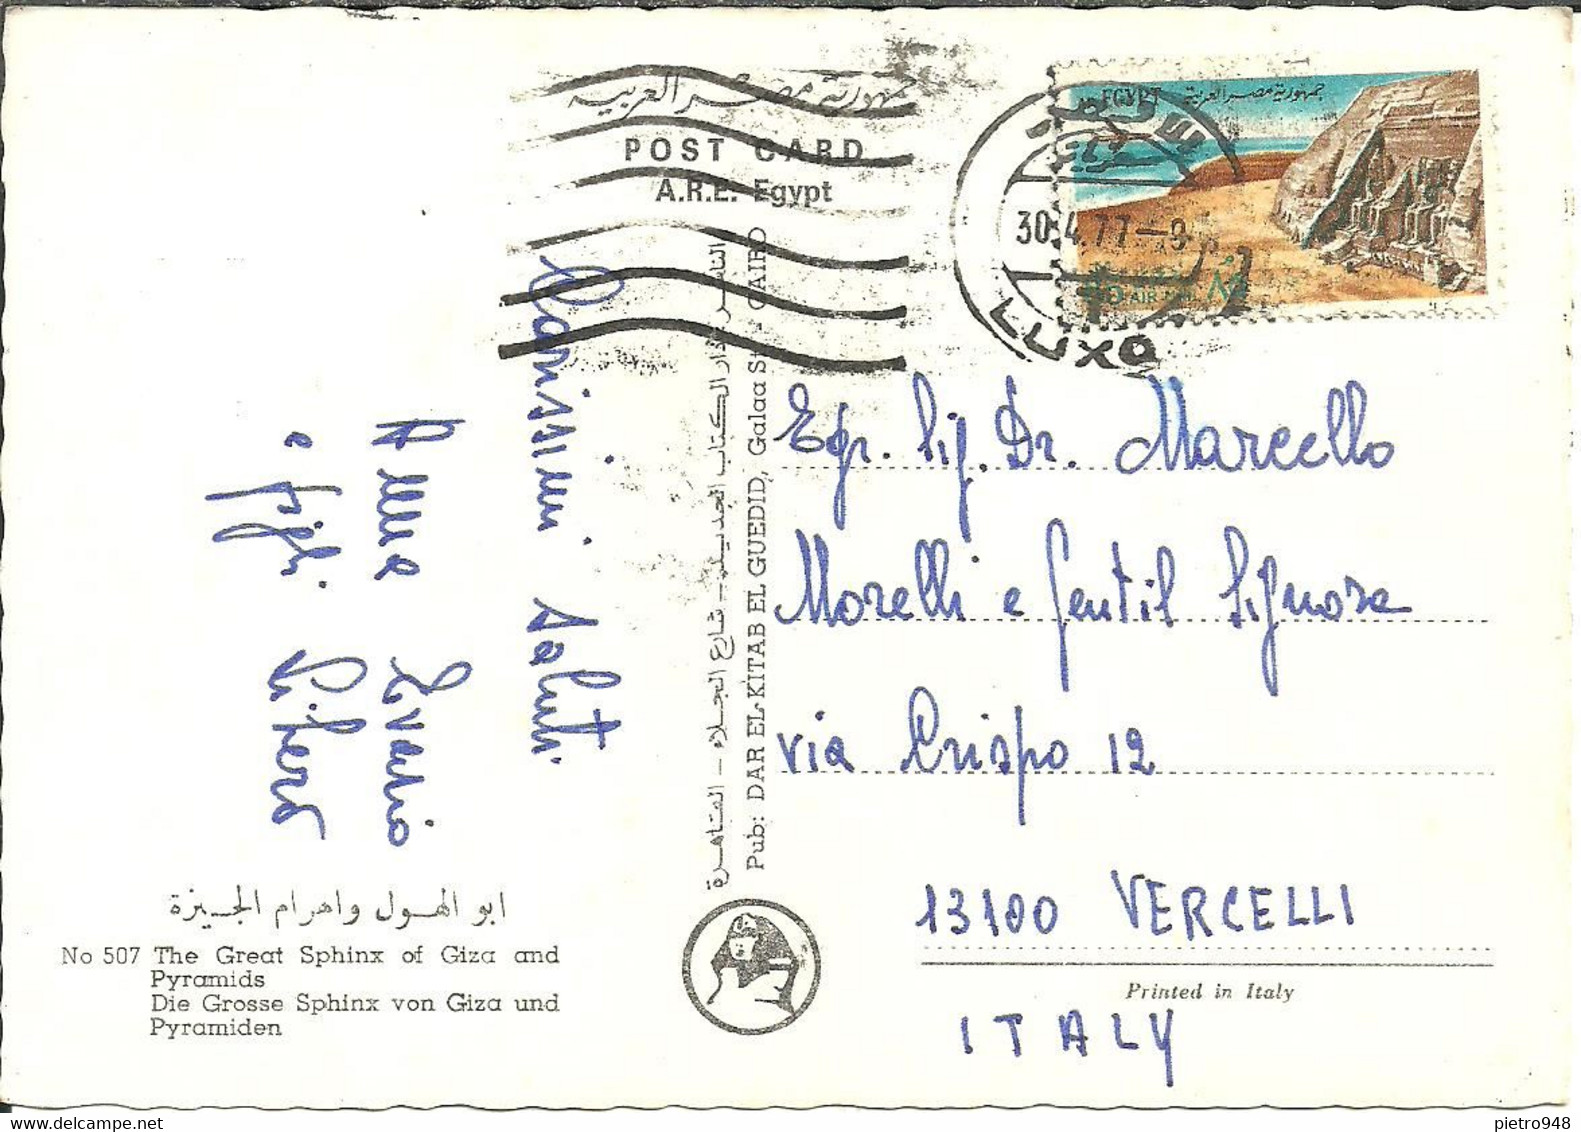 جمهورية مصر العربية
POST CARD
A.R.E. Egypt
EGYPT جمهورية مصر العربية
AIR MAIL
30.4.77-9
LUXO
Carissimi saluti
Anna Evasio
e figli
Egr. Sig. Dr. Marcello
Morelli e Gentil Signora
via Crispo 12
13100 VERCELLI
ITALY
Printed in Italy
الناشر: دار الكتاب الجديد – شارع الجلاء – القاهرة
Pub: DAR EL-KITAB EL GUEDID, Galaa St. - CAIRO
ابو الهول واهرام الجيزة
No 507 The Great Sphinx of Giza and
Pyramids
Die Grosse Sphinx von Giza und
Pyramiden
pietro948